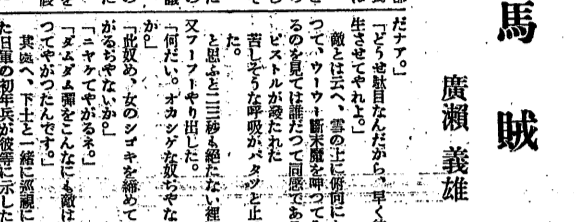 馬賊
廣瀬義雄
だナア。」
「どうせ駄目なんだから、早く
生させてやれよ。」
敵とは云へ、雪の上に俯向に
つて、ウーウー斷末魔を呻つて
るのを見ては誰だつて同感であ
ピストルが發たれた
苦しそうな呼吸がパタッと止
た。
と思ふと二三秒も絶たない裡
又フーフーやり出した。
「何だい。オカシゲな奴ぢやな
か。」
「此奴め、女のシゴキを締めて
がるぢやないか。」
「ニヤケてやがるネ。」
「ダムダム彈をこんなにも敵は
つてやがつたんです。」
其處へ、下士と一緒に巡視に
た日軍の初年兵が彼等に示した